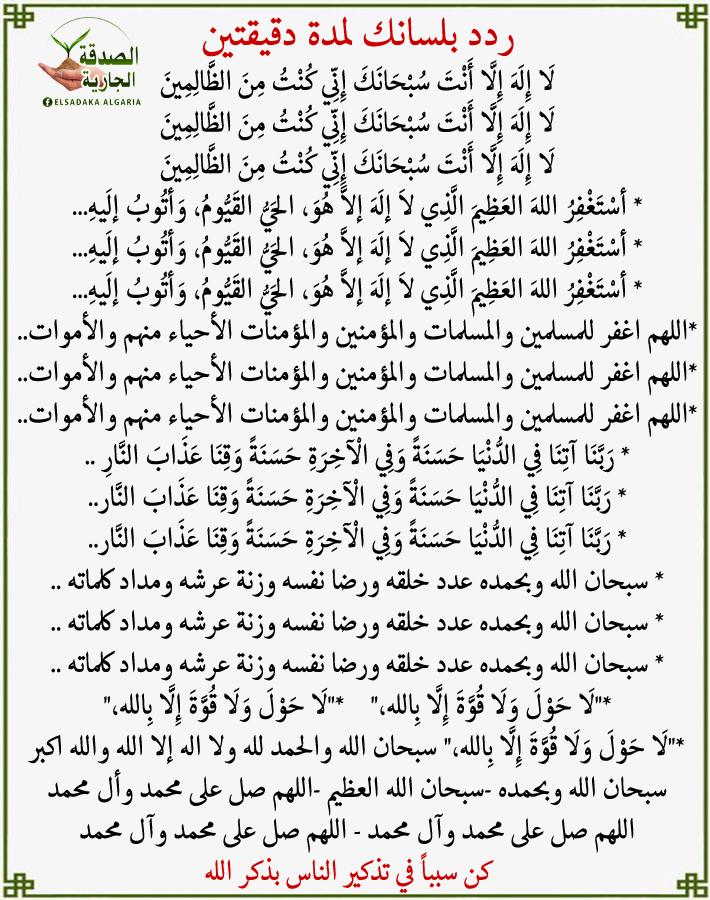 الصدقة
الجارية
ELSADAKA ALGARIA
ردد بلسانك لمدة دقيقتين
لَا إِلَهَ إِلَّا أَنْتَ سُبْحَانَكَ إِنِّي كُنْتُ مِنَ الظَّالِمِينَ
لَا إِلَهَ إِلَّا أَنْتَ سُبْحَانَكَ إِنِّي كُنْتُ مِنَ الظَّالِمِينَ
لَا إِلَهَ إِلَّا أَنْتَ سُبْحَانَكَ إِنِّي كُنْتُ مِنَ الظَّالِمِينَ
* أسْتَغْفِرُ اللهَ العَظِيمَ الَّذِي لاَ إلَهَ إلاَّ هُوَ، الحَيُّ القَيُّومُ، وَأتُوبُ إلَيهِ...
* أسْتَغْفِرُ اللهَ العَظِيمَ الَّذِي لاَ إلَهَ إلاَّ هُوَ، الحَيُّ القَيُّومُ، وَأتُوبُ إلَيهِ...
* أسْتَغْفِرُ اللهَ العَظِيمَ الَّذِي لاَ إلَهَ إلاَّ هُوَ، الحَيُّ القَيُّومُ، وَأتُوبُ إلَيهِ...
*اللهم اغفر للمسلمين والمسلمات والمؤمنين والمؤمنات الأحياء منهم والأموات..
*اللهم اغفر للمسلمين والمسلمات والمؤمنين والمؤمنات الأحياء منهم والأموات..
*اللهم اغفر للمسلمين والمسلمات والمؤمنين والمؤمنات الأحياء منهم والأموات..
* رَبَّنَا آتِنَا فِي الدُّنْيَا حَسَنَةً وَفِي الْآخِرَةِ حَسَنَةً وَقِنَا عَذَابَ النَّارِ ..
* رَبَّنَا آتِنَا فِي الدُّنْيَا حَسَنَةً وَفِي الْآخِرَةِ حَسَنَةً وَقِنَا عَذَابَ النَّارِ..
* رَبَّنَا آتِنَا فِي الدُّنْيَا حَسَنَةً وَفِي الْآخِرَةِ حَسَنَةً وَقِنَا عَذَابَ النَّارِ..
* سبحان الله وبحمده عدد خلقه ورضا نفسه وزنة عرشه ومداد كلماته ..
* سبحان الله وبحمده عدد خلقه ورضا نفسه وزنة عرشه ومداد كلماته ..
* سبحان الله وبحمده عدد خلقه ورضا نفسه وزنة عرشه ومداد كلماته ..
*"لَا حَوْلَ وَلَا قُوَّةَ إِلَّا بِالله،" *"لَا حَوْلَ وَلَا قُوَّةَ إِلَّا بِالله،"
*"لَا حَوْلَ وَلَا قُوَّةَ إِلَّا بِالله،" سبحان الله والحمد لله ولا اله إلا الله والله اكبر
سبحان الله وبحمده -سبحان الله العظيم -اللهم صل على محمد وأل محمد
اللهم صل على محمد وآل محمد - اللهم صل على محمد وآل محمد
كن سبباً في تذكير الناس بذكر الله